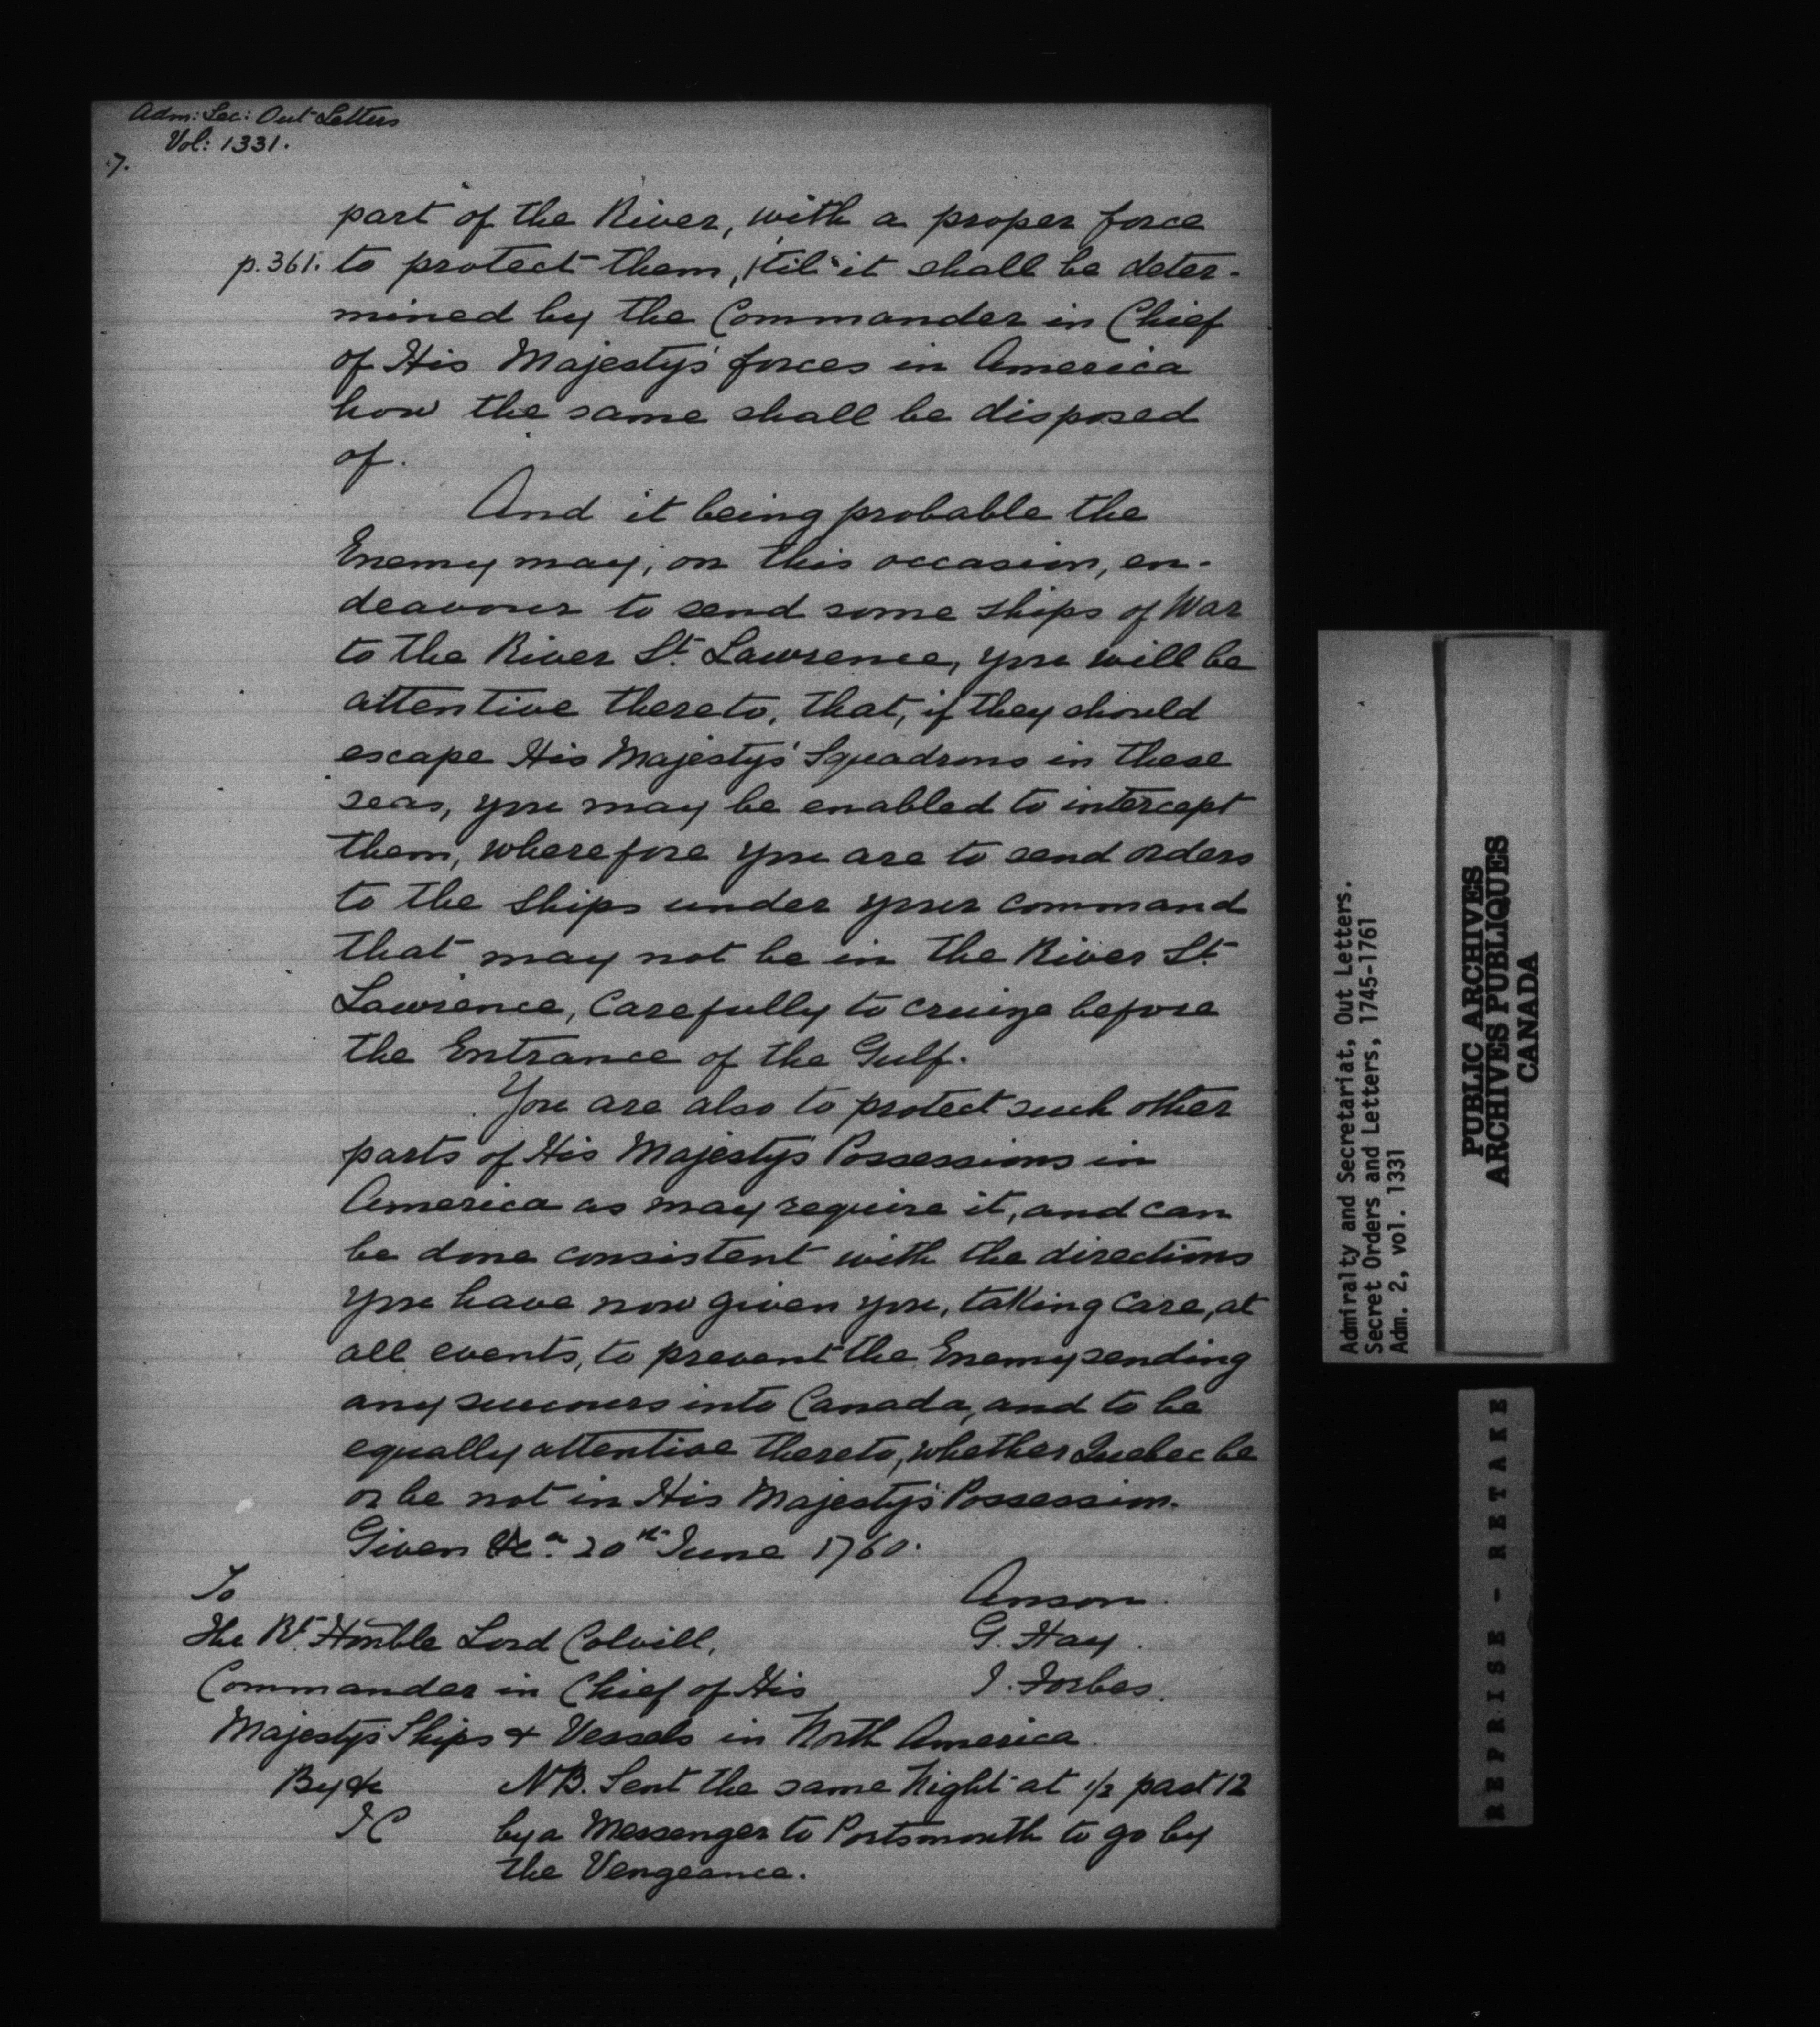 Adm: Sec: Out Letters
Vol: 1331.
7.
part of the River, with a proper force
p. 361. to protect them, 'til it shall be deter-
mined by the Commander in Chief
of His Majesty's forces in America
how the same shall be disposed
of.
And it being probable the
Enemy may, on this occasion, en-
deavour to send some ships of War
to the River St. Lawrence, you will be
attentive thereto, that, if they should
escape His Majesty's Squadrons in these
seas, you may be enabled to intercept
them, wherefore you are to send orders
to the ships under your command
that may not be in the River St.
Lawrence, carefully to cruize before
the Entrance of the Gulf.
You are also to protect such other
parts of His Majesty's Possessions in
America as may require it, and can
be done consistent with the directions
you have now given you, taking care, at
all events, to prevent the Enemy sending
any succours into Canada, and to be
equally attentive thereto, whether Quebec be
or be not in His Majesty's Possession.
Given &ca. 20th June 1760.
To
The Rt. Honble Lord Colvill,
Commander in Chief of His
Majesty's Ships & Vessels in North America.
Anson.
G. Hay.
J. Forbes.
By &c
JC
NB. Sent the same Night at 1/2 past 12
by a Messenger to Portsmouth to go by
the Vengeance.
Admiralty and Secretariat, Out Letters.
Secret Orders and Letters, 1745-1761
Adm. 2, vol. 1331
PUBLIC ARCHIVES
ARCHIVES PUBLIQUES
CANADA
REPRISE - RETAKE